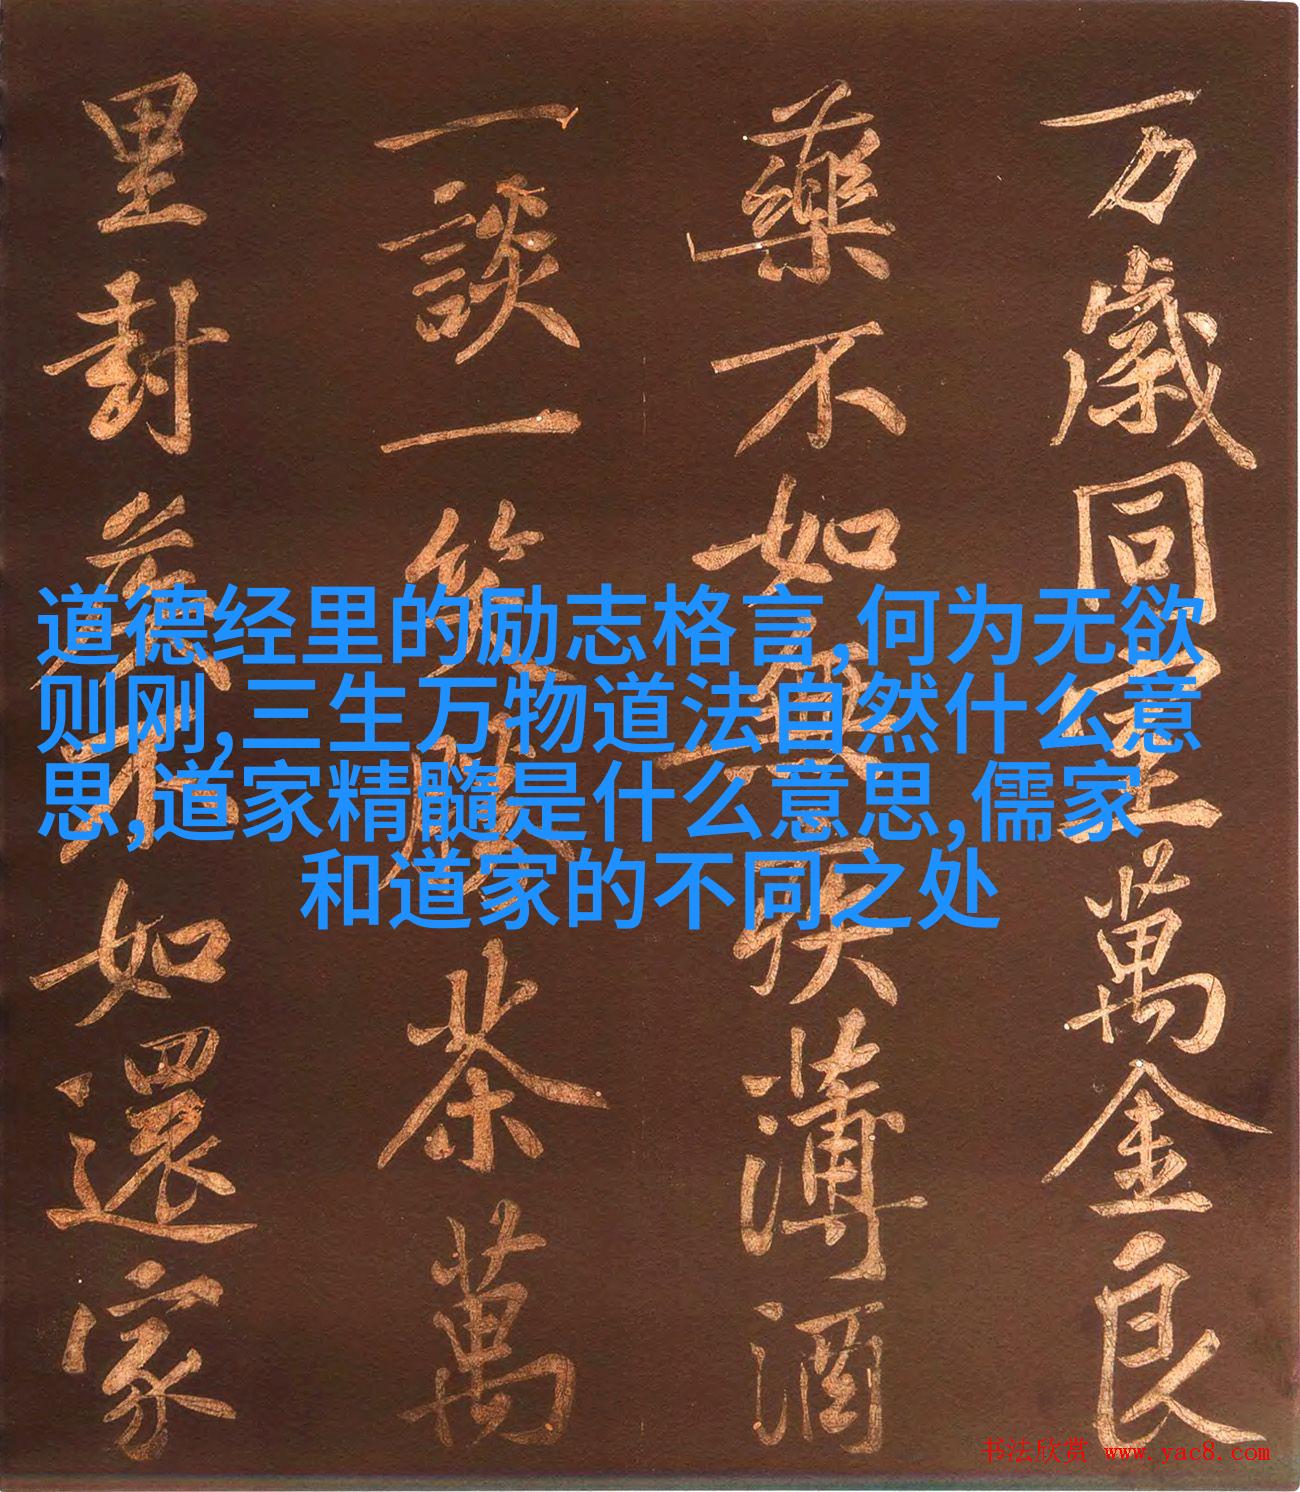 万歲同室萬金良
藥不如無疾薄酒
一談一笑勝茶萬
里封侯不如還家
道德经里的励志格言,何为无欲
则刚,三生万物道法自然什么意
思,道家精髓是什么意思,儒家
和道家的不同之处
书法欣赏 www.yac8.com